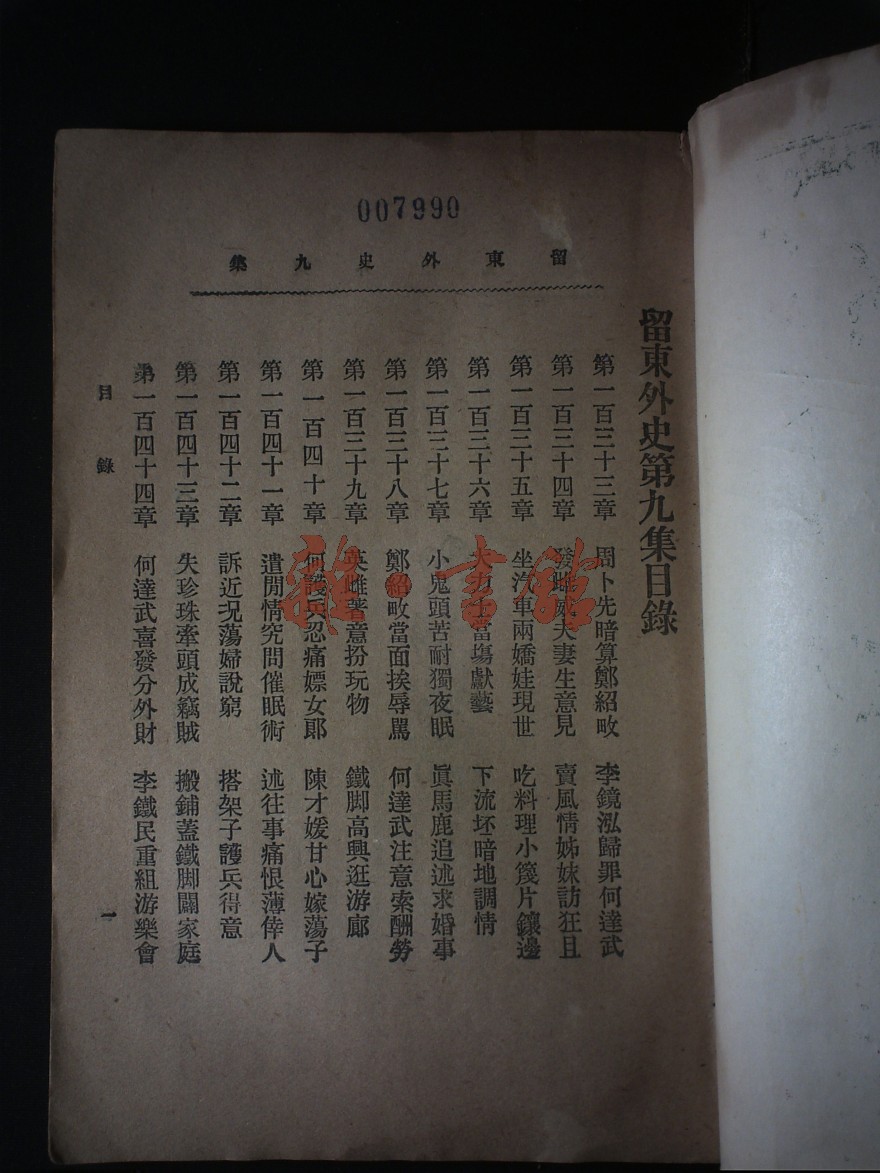 007990
留東外史九集
留東外史第九集目錄
第一百三十三章 周卜先暗算鄭紹畋 李鏡泓歸罪何達武
第一百三十四章 發雌威夫妻生意見 賣風情姊妹訪狂且
第一百三十五章 坐汽車兩嬌娃現世 吃料理小篾片鑲邊
第一百三十六章 大力士當場獻藝 下流坯暗地調情
第一百三十七章 小鬼頭苦耐獨夜眠 眞馬鹿追述求婚事
第一百三十八章 鄭紹畋當面挨辱罵 何達武注意索酬勞
第一百三十九章 英雌著意扮玩物 鐵脚高興逛游廊
第一百四十章 何護兵忍痛嫖女郞 陳才媛甘心嫁蕩子
第一百四十一章 遣閒情究問催眠術 述往事痛恨薄倖人
第一百四十二章 訴近况蕩婦說窮 搭架子護兵得意
第一百四十三章 失珍珠牽頭成竊賊 搬鋪蓋鐵脚鬧家庭
第一百四十四章 何達武喜發分外財 李鐵民重組游樂會
目錄
一
雜·書館